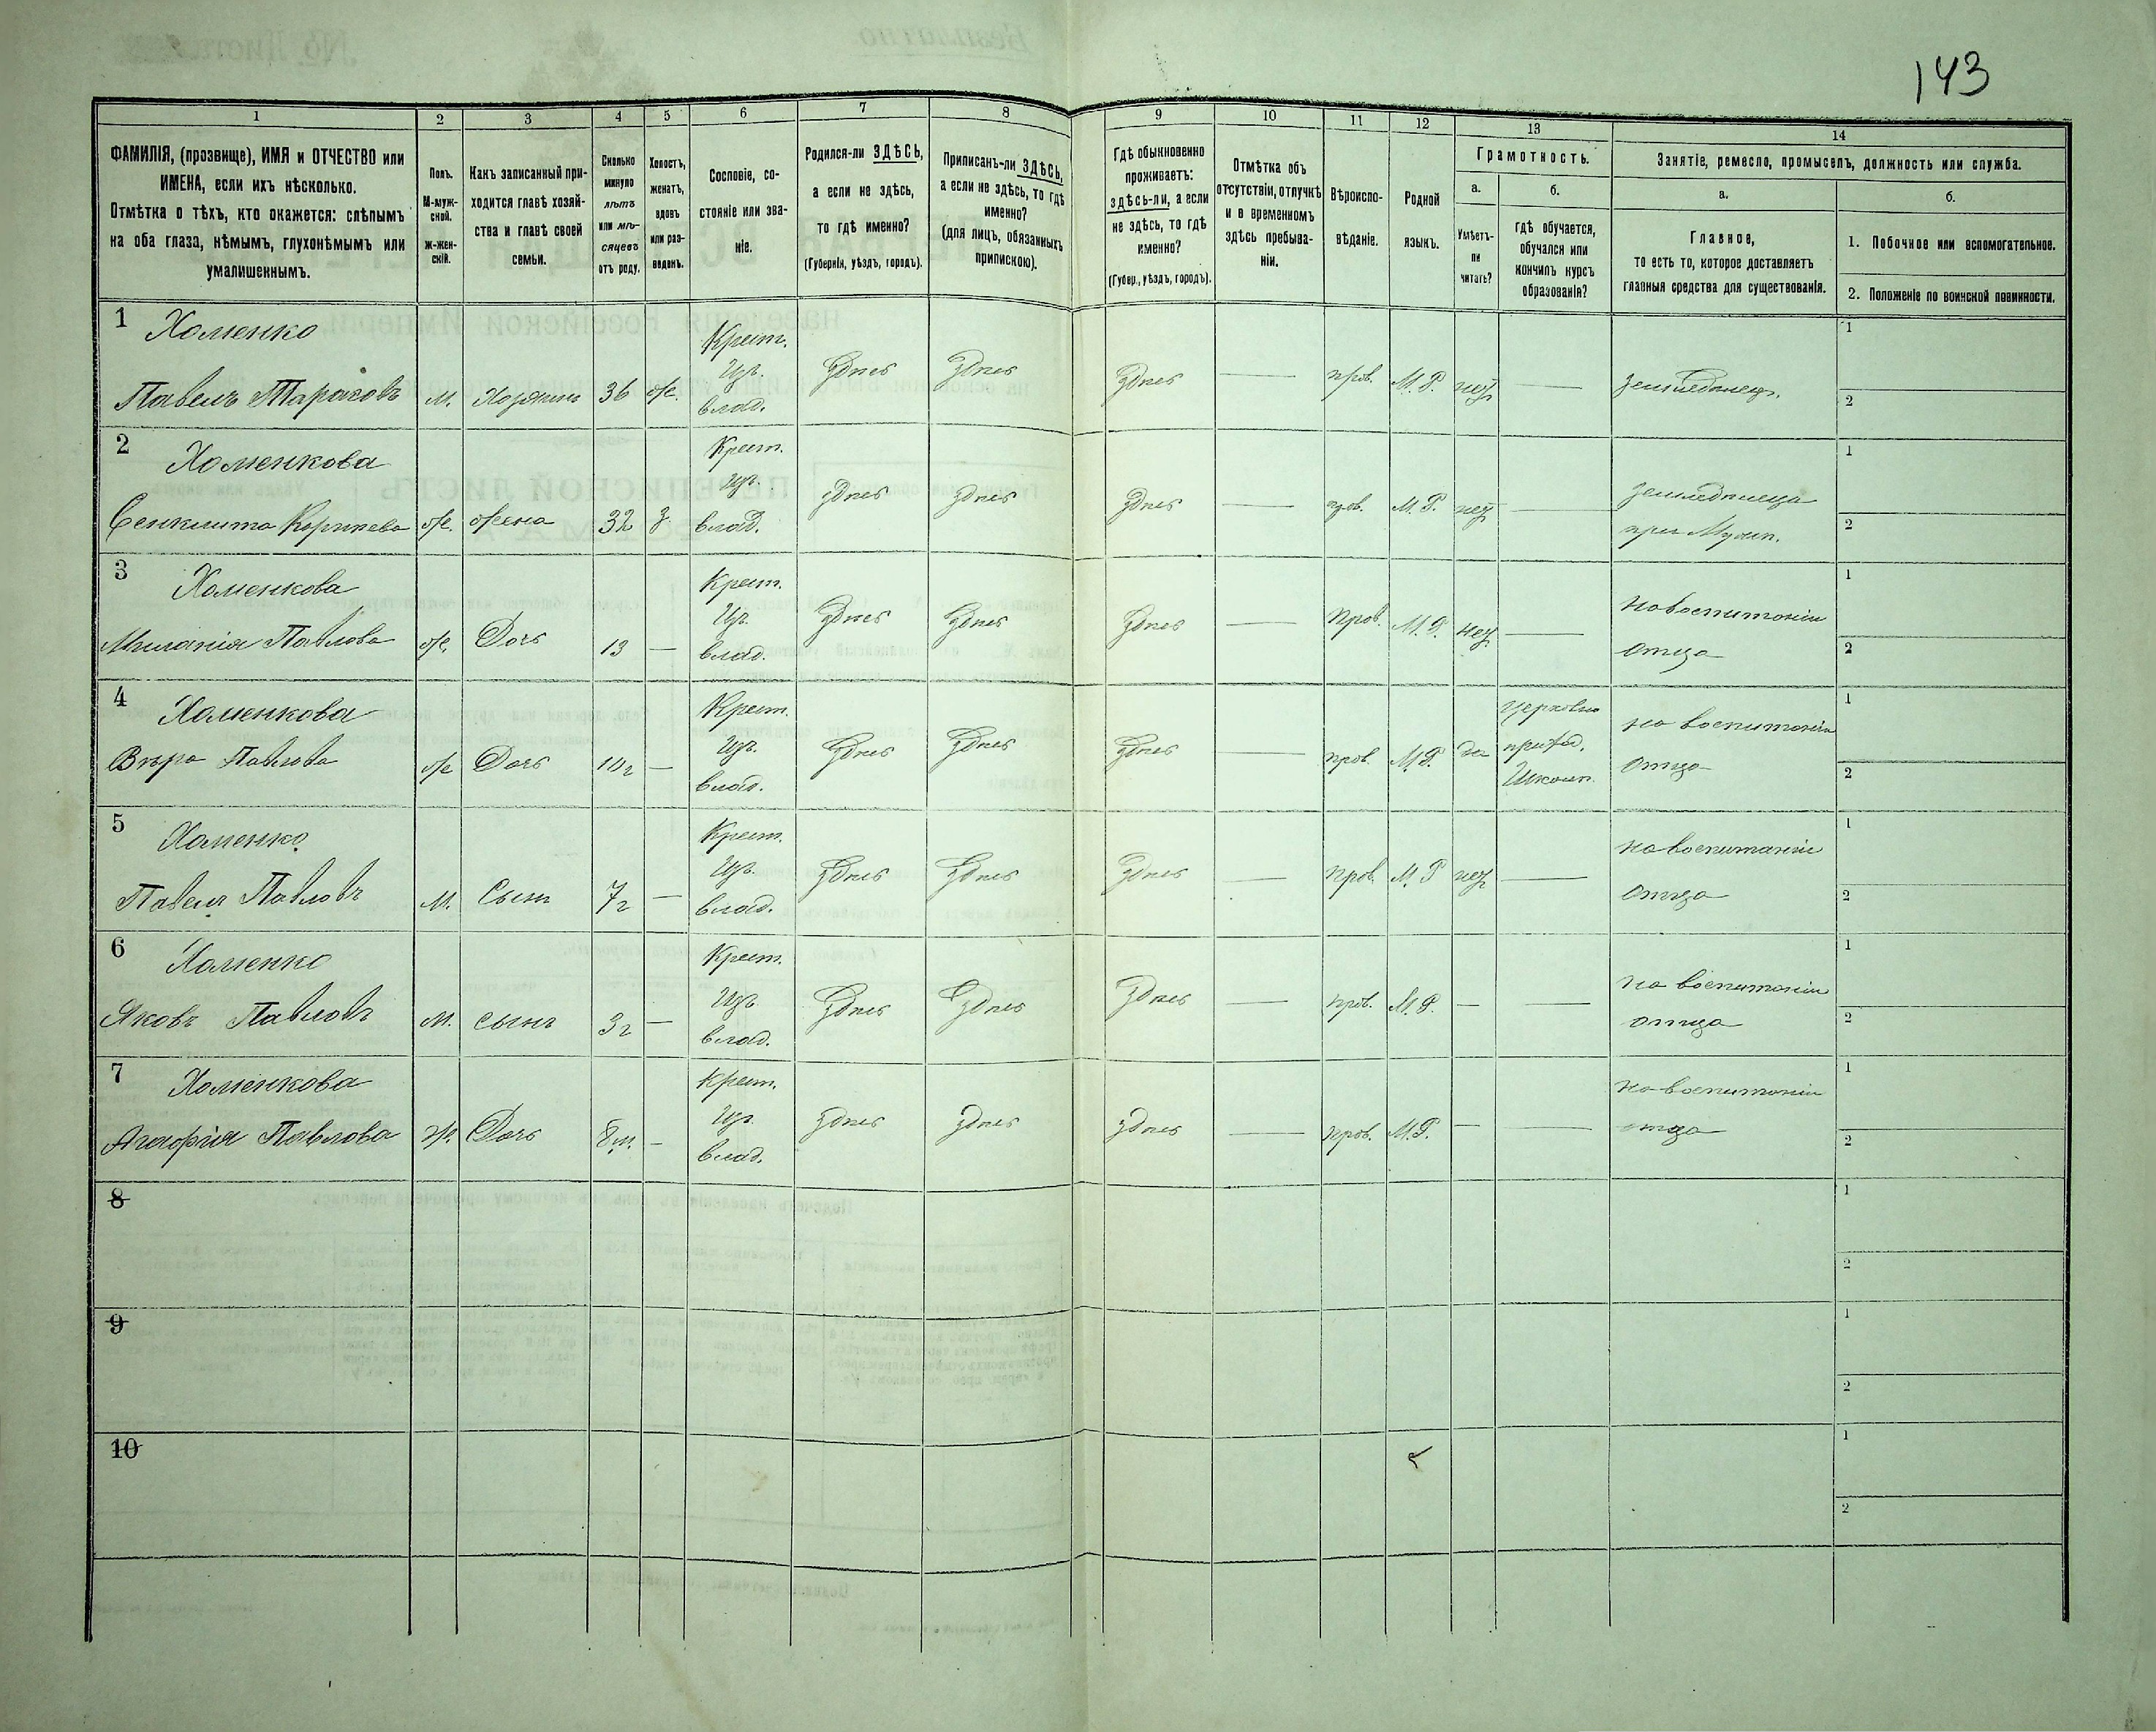 143
1 2 3 4 5 6 7 8 9 10 11 12 13 14
ФАМИЛІЯ, (прозвище), ИМЯ и ОТЧЕСТВО или
ИМЕНА, если ихъ нѣсколько.
Отмѣтка о тѣхъ, кто окажется: слѣпымъ
на оба глаза, нѣмымъ, глухонѣмымъ или
умалишеннымъ.
Полъ.
М-муж-
ской.
ж-жен-
скій.
Какъ записанный при-
ходится главѣ хозяй-
ства и главѣ своей
семьи.
Сколько
минуло
лѣтъ
или мѣ-
сяцевъ
отъ роду.
Холостъ,
женатъ,
вдовъ
или раз-
веденъ.
Сословіе, со-
стояніе или зва-
ніе.
Родился-ли ЗДѢСЬ,
а если не здѣсь,
то гдѣ именно?
(Губернія, уѣздъ, городъ).
Приписанъ-ли ЗДѢСЬ,
а если не здѣсь, то гдѣ
именно?
(для лицъ, обязанныхъ
припискою).
Гдѣ обыкновенно
проживаетъ:
здѣсь-ли, а если
не здѣсь, то гдѣ
именно?
(Губер., уѣздъ, городъ).
Отмѣтка объ
отсутствіи, отлучкѣ
и о временномъ
здѣсь пребыва-
ніи.
Вѣроиспо-
вѣданіе.
Родной
языкъ.
Грамотность.
а.
Умѣетъ-
ли
читать?
б.
гдѣ обучается,
обучался или
кончилъ курсъ
образованія?
Занятіе, ремесло, промыселъ, должность или служба.
а.
Главное,
то есть то, которое доставляетъ
главныя средства для существованія.
б.
1. Побочное или вспомогательное.
2. Положеніе по воинской повинности.
1 Хоменко
Павелъ Тарасовъ м. Хозяинъ 36 ж.
Крест.
изъ
влад.
здѣсь здѣсь здѣсь — прав. М. Р. нѣтъ — земледѣлецъ.
1
2
2 Хоменкова
Сенклита Корнѣева ж. жена 32 з.
Крест.
изъ
влад.
здѣсь здѣсь здѣсь — прав. М. Р. нѣтъ —
земледѣлица
при Мужѣ.
1
2
3 Хоменкова
Миланія Павлова ж. Дочь 13 —
Крест.
изъ
влад.
здѣсь здѣсь здѣсь — Прав. М. Р. нѣтъ —
на воспитаніи
отца
1
2
4 Хоменкова
Вѣра Павлова ж Дочь 10 г —
Крест.
изъ
влад.
здѣсь здѣсь здѣсь — прав. М. Р. да
церковно
приход.
Школѣ
на воспитаніи
отца
1
2
5 Хоменко
Павелъ Павловъ м. Сынъ 7 г —
Крест.
изъ
влад.
здѣсь здѣсь здѣсь — Прав. М. Р нѣтъ —
на воспитаніи
отца
1
2
6 Хоменко
Яковъ Павловъ м. сынъ 3 г —
Крест.
изъ
влад.
здѣсь здѣсь здѣсь — прав. М. Р. — —
на воспитаніи
отца
1
2
7 Хоменкова
Агафія Павлова ж. Дочь 8 м. —
Крест.
изъ
влад.
здѣсь здѣсь здѣсь — прав. М. Р. — —
на воспитаніи
отца
1
2
8
1
2
9
1
2
10
1
2